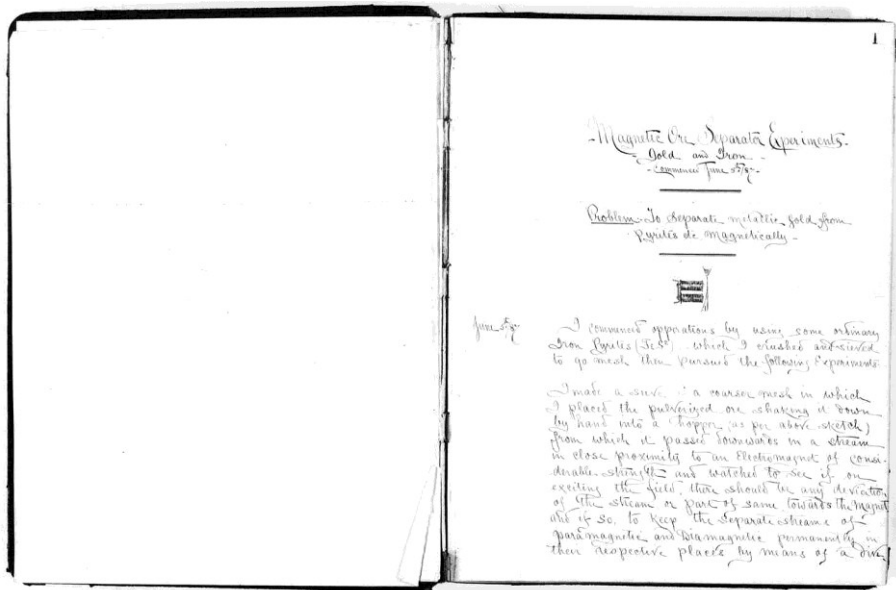 1
Magnetic Ore Separator Experiments.
Gold and Iron.
Commenced June 5th/
Problem - To Separate metallic gold from
Pyrites &c Magnetically -
June 5th/
I commenced opperations by using some ordinary
Iron Pyrites (FeS2) which I crushed and sieved
to 90 mesh then pursued the following Experiments
I made a sieve of a courser mesh in which
I placed the pulverized ore shaking it down
by hand into a hopper (as per above sketch)
from which it passed downwards in a stream
in close proximity to an Electromagnet of consi-
derable strength and watched to see if on
exciting the field, there should be any deviation
of the stream or part of same towards the Magnet
and if so, to keep the Separate streams of
paramagnetic and Diamagnetic permanently in
their respective places by means of a